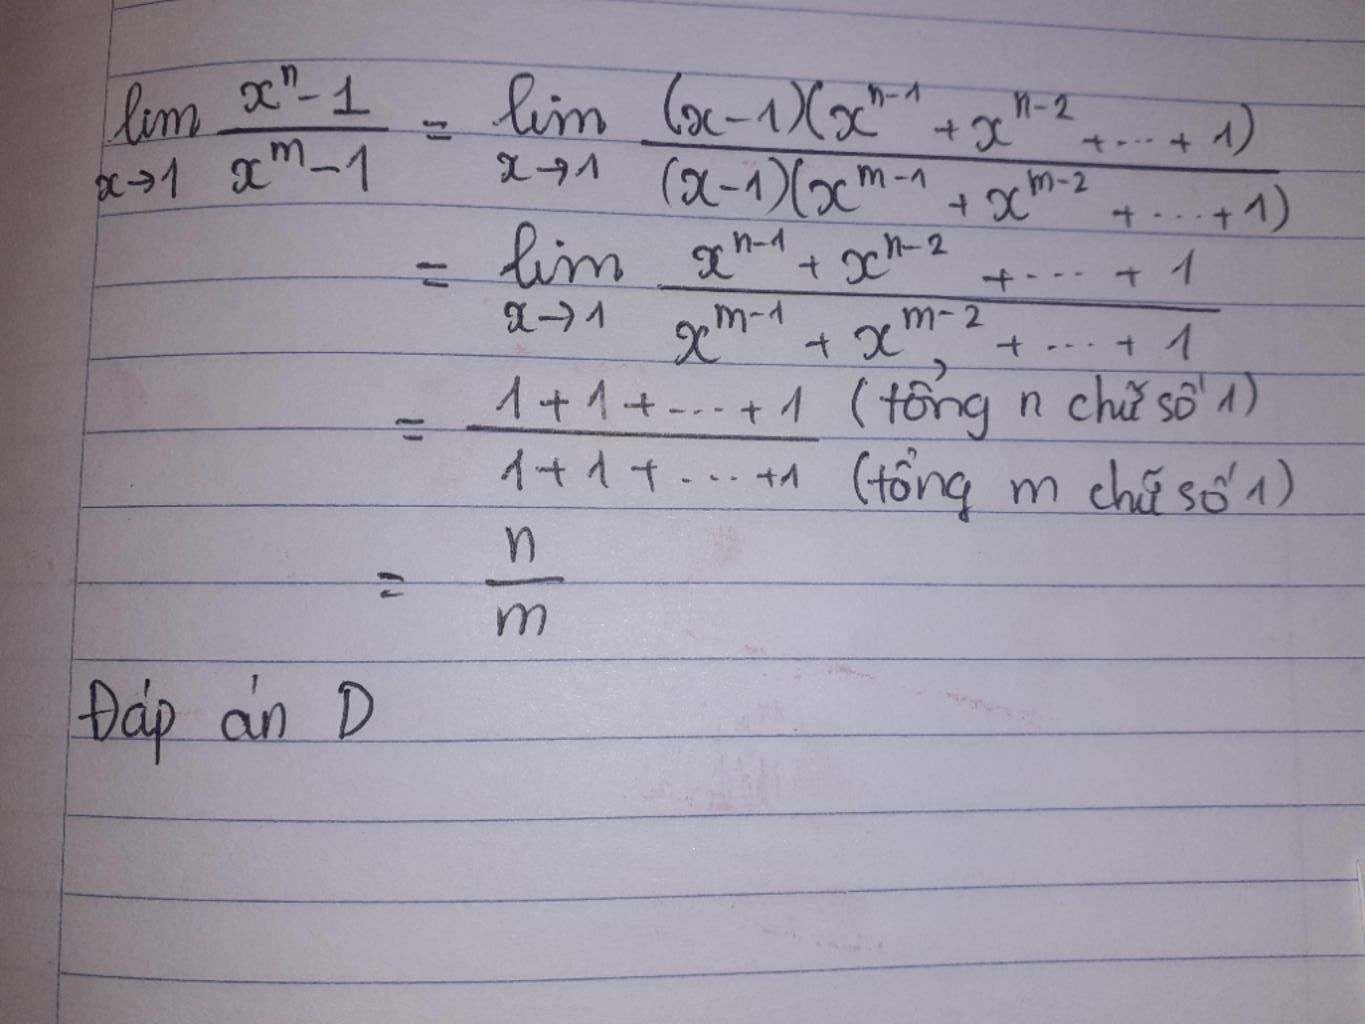 lim x→1 (xⁿ - 1)/(xᵐ - 1) = lim x→1 ((x-1)(xⁿ⁻¹ + xⁿ⁻² + ... + 1))/((x-1)(xᵐ⁻¹ + xᵐ⁻² + ... + 1))
= lim x→1 (xⁿ⁻¹ + xⁿ⁻² + ... + 1)/(xᵐ⁻¹ + xᵐ⁻² + ... + 1)
= 1 + 1 + ... + 1 (tổng n chữ số 1)
1 + 1 + ... + 1 (tổng m chữ số 1)
= n/m
Đáp án D